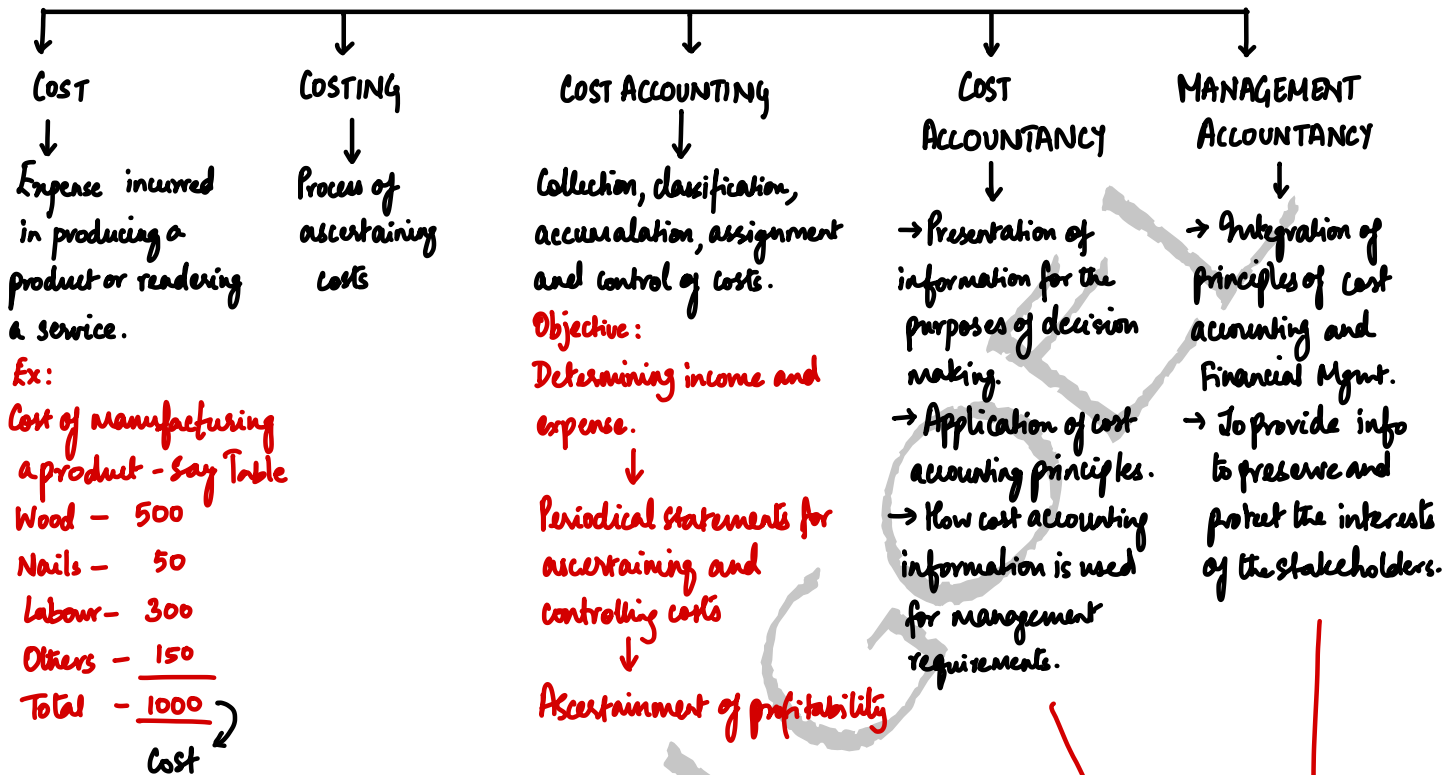 COST
Expense incurred
in producing a
product or rendering
a service.
Ex:
Cost of manufacturing
a product - Say Table
Wood - 500
Nails - 50
Labour - 300
Others - 150
Total - 1000
Cost
COSTING
Process of
ascertaining
costs
COST ACCOUNTING
Collection, classification,
accumalation, assignment
and control of costs.
Objective:
Determining income and
expense.
Periodical statements for
ascertaining and
controlling costs
Ascertainment of profitability
COST
ACCOUNTANCY
→ Presentation of
information for the
purposes of decision
making.
→ Application of cost
accounting principles.
→ How cost accounting
information is used
for management
requirements.
MANAGEMENT
ACCOUNTANCY
→ Integration of
principles of cost
accounting and
Financial Mgmt.
→ To provide info
to preserve and
protect the interests
of the stakeholders.
GOEL